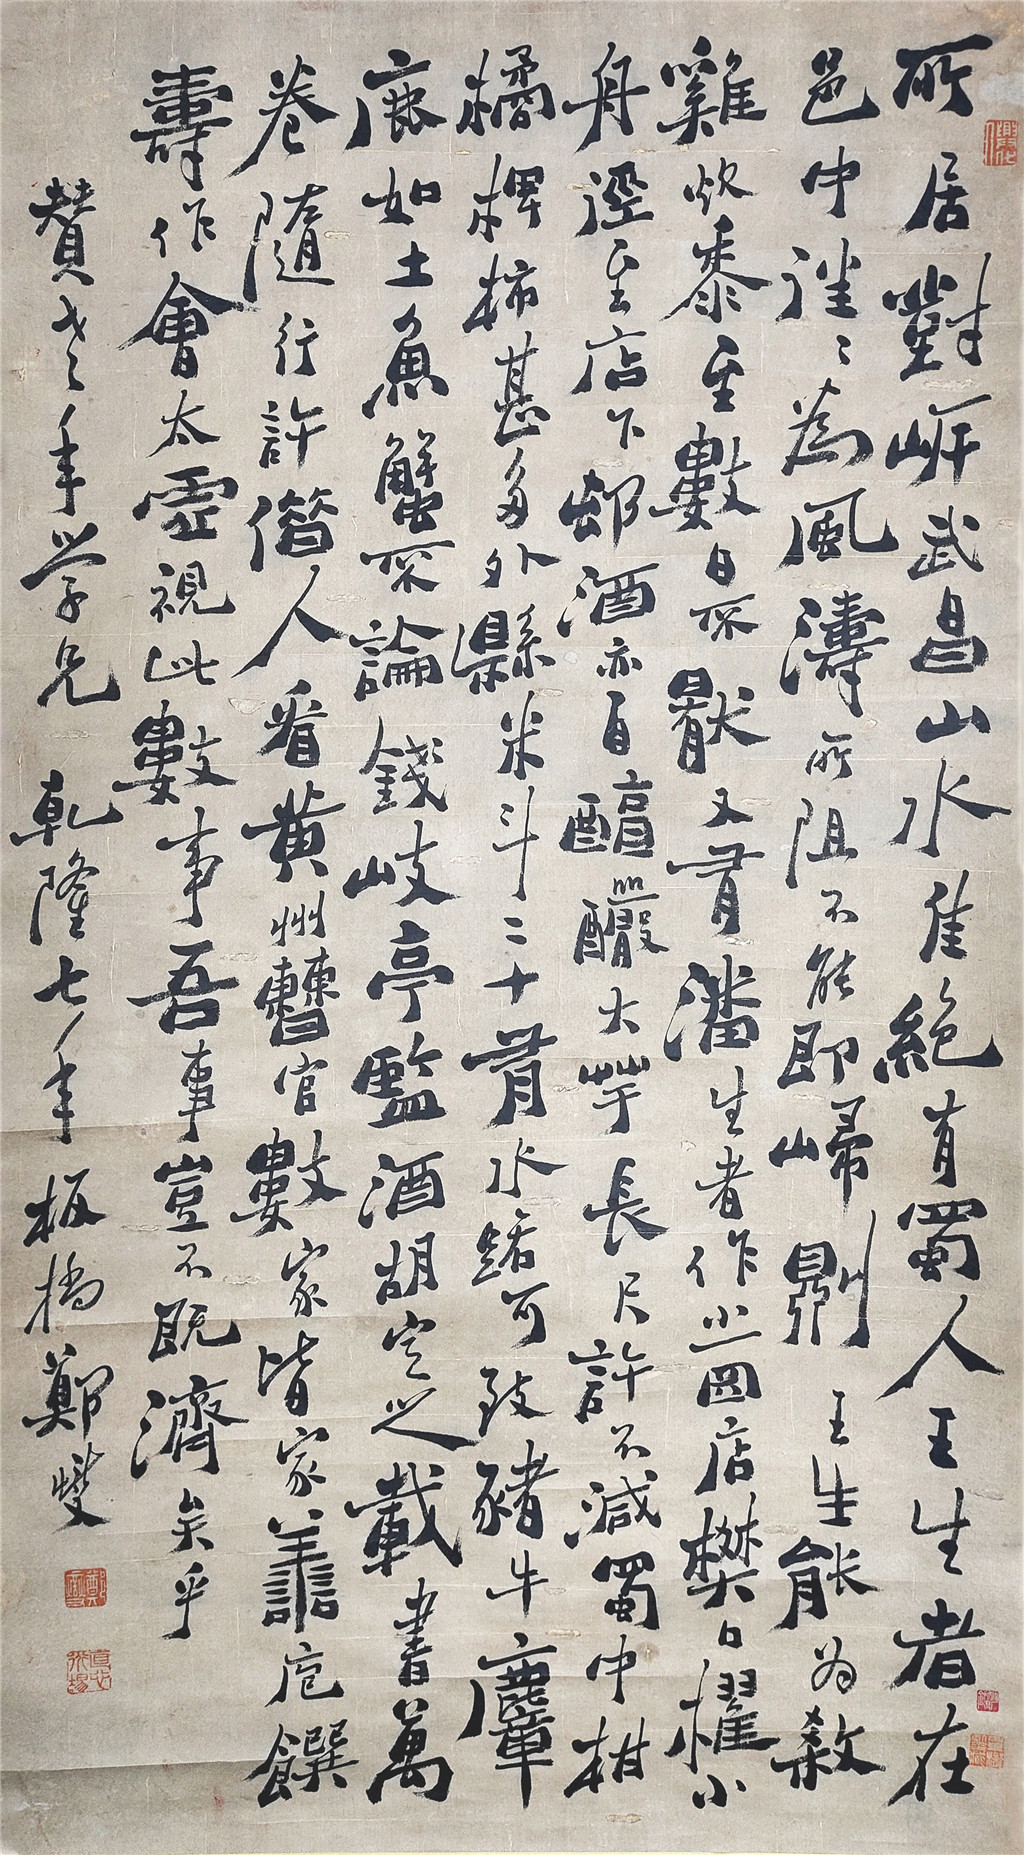 所居對岍武昌山水佳絕有蜀人王生者在
邑中𨓏〻為風濤所阻不能即歸則王生能為殺
雞炊黍至數日不厭又有潘生者作酒店樊口櫂小
舟逕至店下邨酒亦自醇釅大芋長尺許不減蜀中柑
橘椑柿甚多外縣米斗二十有水路可致豬牛麞
鹿如土魚蟹不論錢岐亭監酒胡定之載書萬
卷隨行許借人看黃州曹官數家皆家善庖饌
壽作會太虛視此數事吾事豈不既濟矣乎
贊老年學兄 乾隆七年板橋鄭燮